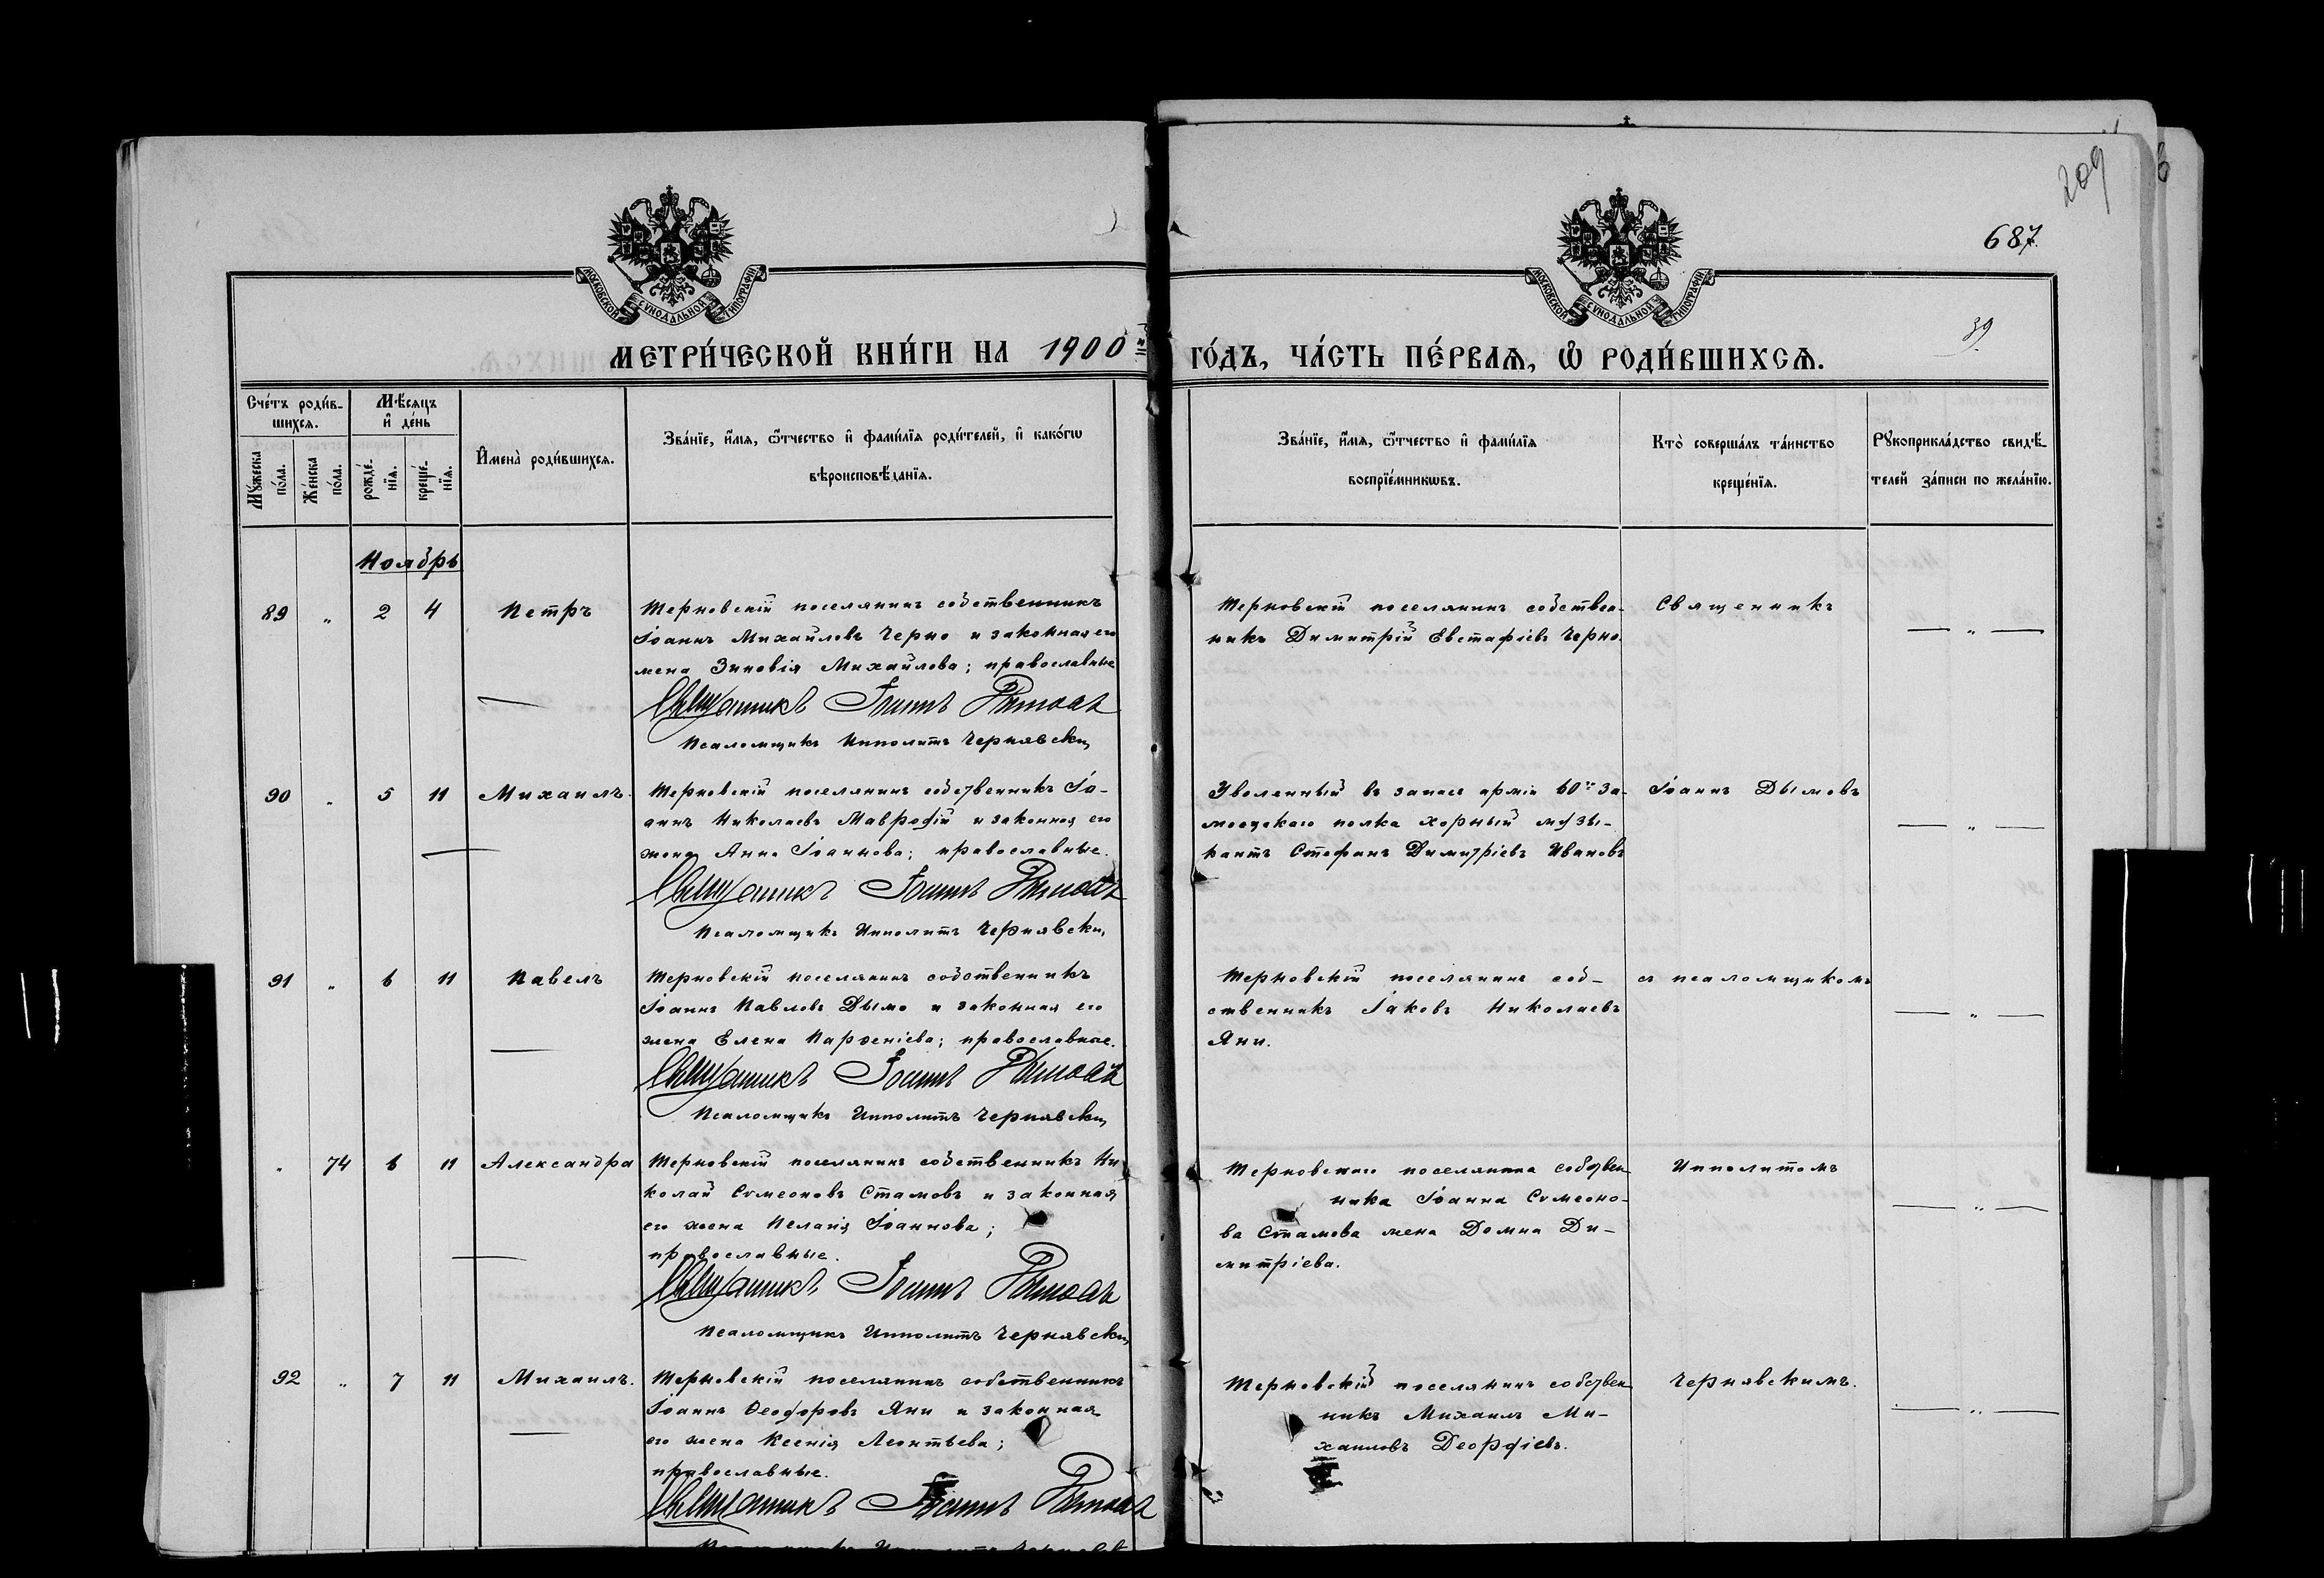 209
687.
39
МОСКОВСКОЙ СУНОДАЛЬНОЙ ТИПОГРАФИИ
МОСКОВСКОЙ СУНОДАЛЬНОЙ ТИПОГРАФИИ
МЕТРИ́ЧЕСКОЙ КНИ́ГИ НА 1900й ГО́ДЪ, ЧА́СТЬ ПЕ́РВАѦ, Ѡ҆ РОДИ́ВШИХСѦ.
Сче́тъ роди́в-
шихсѧ.
Мꙋ́жеска по́ла.
Же́нска по́ла.
Мѣ́сѧцъ
и҆ де́нь
рожде́-нїѧ.
креще́-нїѧ.
И҆мена̀ роди́вшихсѧ.
Зва́нїе, и҆́мѧ, ѻ҆́тчество и҆ фами́лїѧ роди́телей, и҆ како́гѡ
вѣроисповѣ́данїѧ.
Зва́нїе, и҆́мѧ, ѻ҆́тчество и҆ фами́лїѧ
воспрїе́мникѡвъ.
Кто̀ соверша́лъ та́инство
креще́нїѧ.
Рꙋкоприкла́дство свидѣ́-
телей за́писи по жела́нїю.
Ноябрь
89 „ 2 4 Петръ
Терновскій поселянинъ собственникъ
Іоаннъ Михайловъ Черно и законная его
жена Зиновія Михайлова; православные
Священникъ Іоаннъ Дымовъ
Псаломщикъ Ипполитъ Чернявскій
Терновскій поселянинъ собствен-
никъ Димитрій Евстафіевъ Черно.
Священникъ
— „ —
90 „ 5 11 Михаилъ.
Терновскій поселянинъ собственникъ Іо-
аннъ Николаевъ Мавродій и законная его
жена Анна Іоаннова; православные.
Священникъ Іоаннъ Дымовъ
Псаломщикъ Ипполитъ Чернявскій
Уволенный въ запасъ арміи 60го За-
мосцскаго полка хорный музы-
кантъ Стефанъ Димитріевъ Ивановъ
Іоаннъ Дымовъ
— „ —
91 „ 6 11 Павелъ
Терновскій поселянинъ собственникъ
Іоаннъ Павловъ Дымо и законная его
жена Елена Парѳеніева; православные.
Священникъ Іоаннъ Дымовъ
Псаломщикъ Ипполитъ Чернявскій
Терновскій поселянинъ соб-
ственникъ Іаковъ Николаевъ
Яни.
съ псаломщикомъ
— „ —
„ 74 6 11 Александра
Терновскій поселянинъ собственникъ Ни-
колай Сѵмеоновъ Стамовъ и законная
его жена Пелагія Іоаннова;
православные.
Священникъ Іоаннъ Дымовъ
Псаломщикъ Ипполитъ Чернявскій
Терновскаго поселянина собствен
ника Іоанна Сѵмеоно-
ва Стамова жена Домна Ди-
митріева.
Ипполитомъ
— „ —
92 „ 7 11 Михаилъ.
Терновскій поселянинъ собственникъ
Іоаннъ Ѳеодоровъ Яни и законная
его жена Ксенія Леонтьева;
православные.
Священникъ Іоаннъ Дымовъ
Псаломщикъ Ипполитъ Чернявскій
Терновскій поселянинъ собствен
никъ Михаилъ Ми-
хаиловъ Деордіевъ.
Чернявскимъ.
— „ —